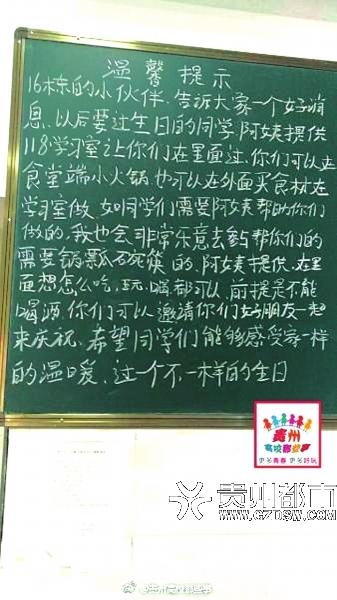 温馨提示
16栋的小伙伴,告诉大家一个好消
息,以后要过生日的同学,阿姨提供
118学习室让你们在里面过,你们可以去
食堂端小火锅,也可以在外面买食材在
学习室做,如同学们需要阿姨帮助你们
做的,我也会非常乐意去参与帮你们的
需要锅瓢碗筷的,阿姨提供,在里
面想怎么吃、玩、喝都可以,前提是不能
喝酒,你们可以邀请你们好朋友一起
来庆祝,希望同学们能够感受家一样
的温暖,过一个不一样的生日
贵州
高校那些事
更多青春 更多好玩
贵州都市